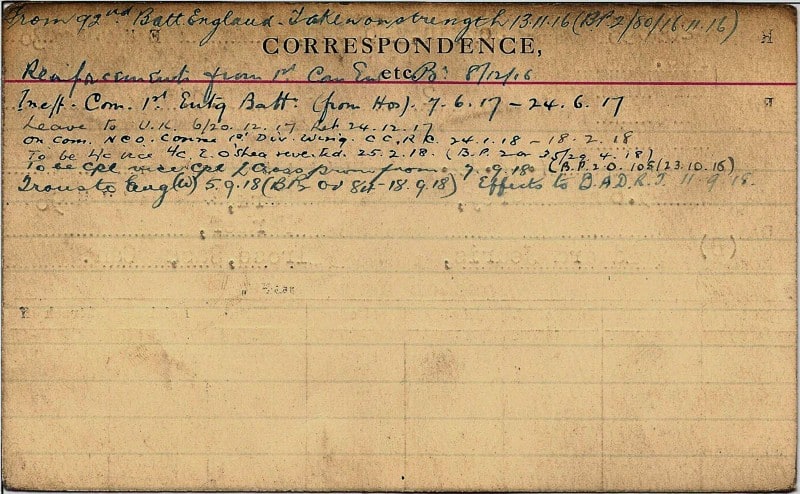 From 92nd Batt England. Taken on strength 13.11.16 (B.P.2/80/16.11.16)
CORRESPONDENCE,
etc.
Reinforcement from 1st Can Ent. Bn 8/12/16
Ineff. Com. 1st Entg Batt. (from Hos). 7.6.17 – 24.6.17
Leave to U.K. 6/20.12.17 Ret 24.12.17
On Com. NCO. 1st Div. Wing. C.C.R.C. 24.1.18 – 18.2.18
To be L/c vice L/c E. O'Shea reverted. 25.2.18. (B.P.2 O. 35/29.4.18)
To be Cpl vice Cpl Cross prom from 7.9.18 (B.P.2.O. 105/23.10.16)
Trans to Eng (W) 5.9.18 (BP2 OD 84-18.9.18) Effects to B.A.D.R.T. 11.9.18.